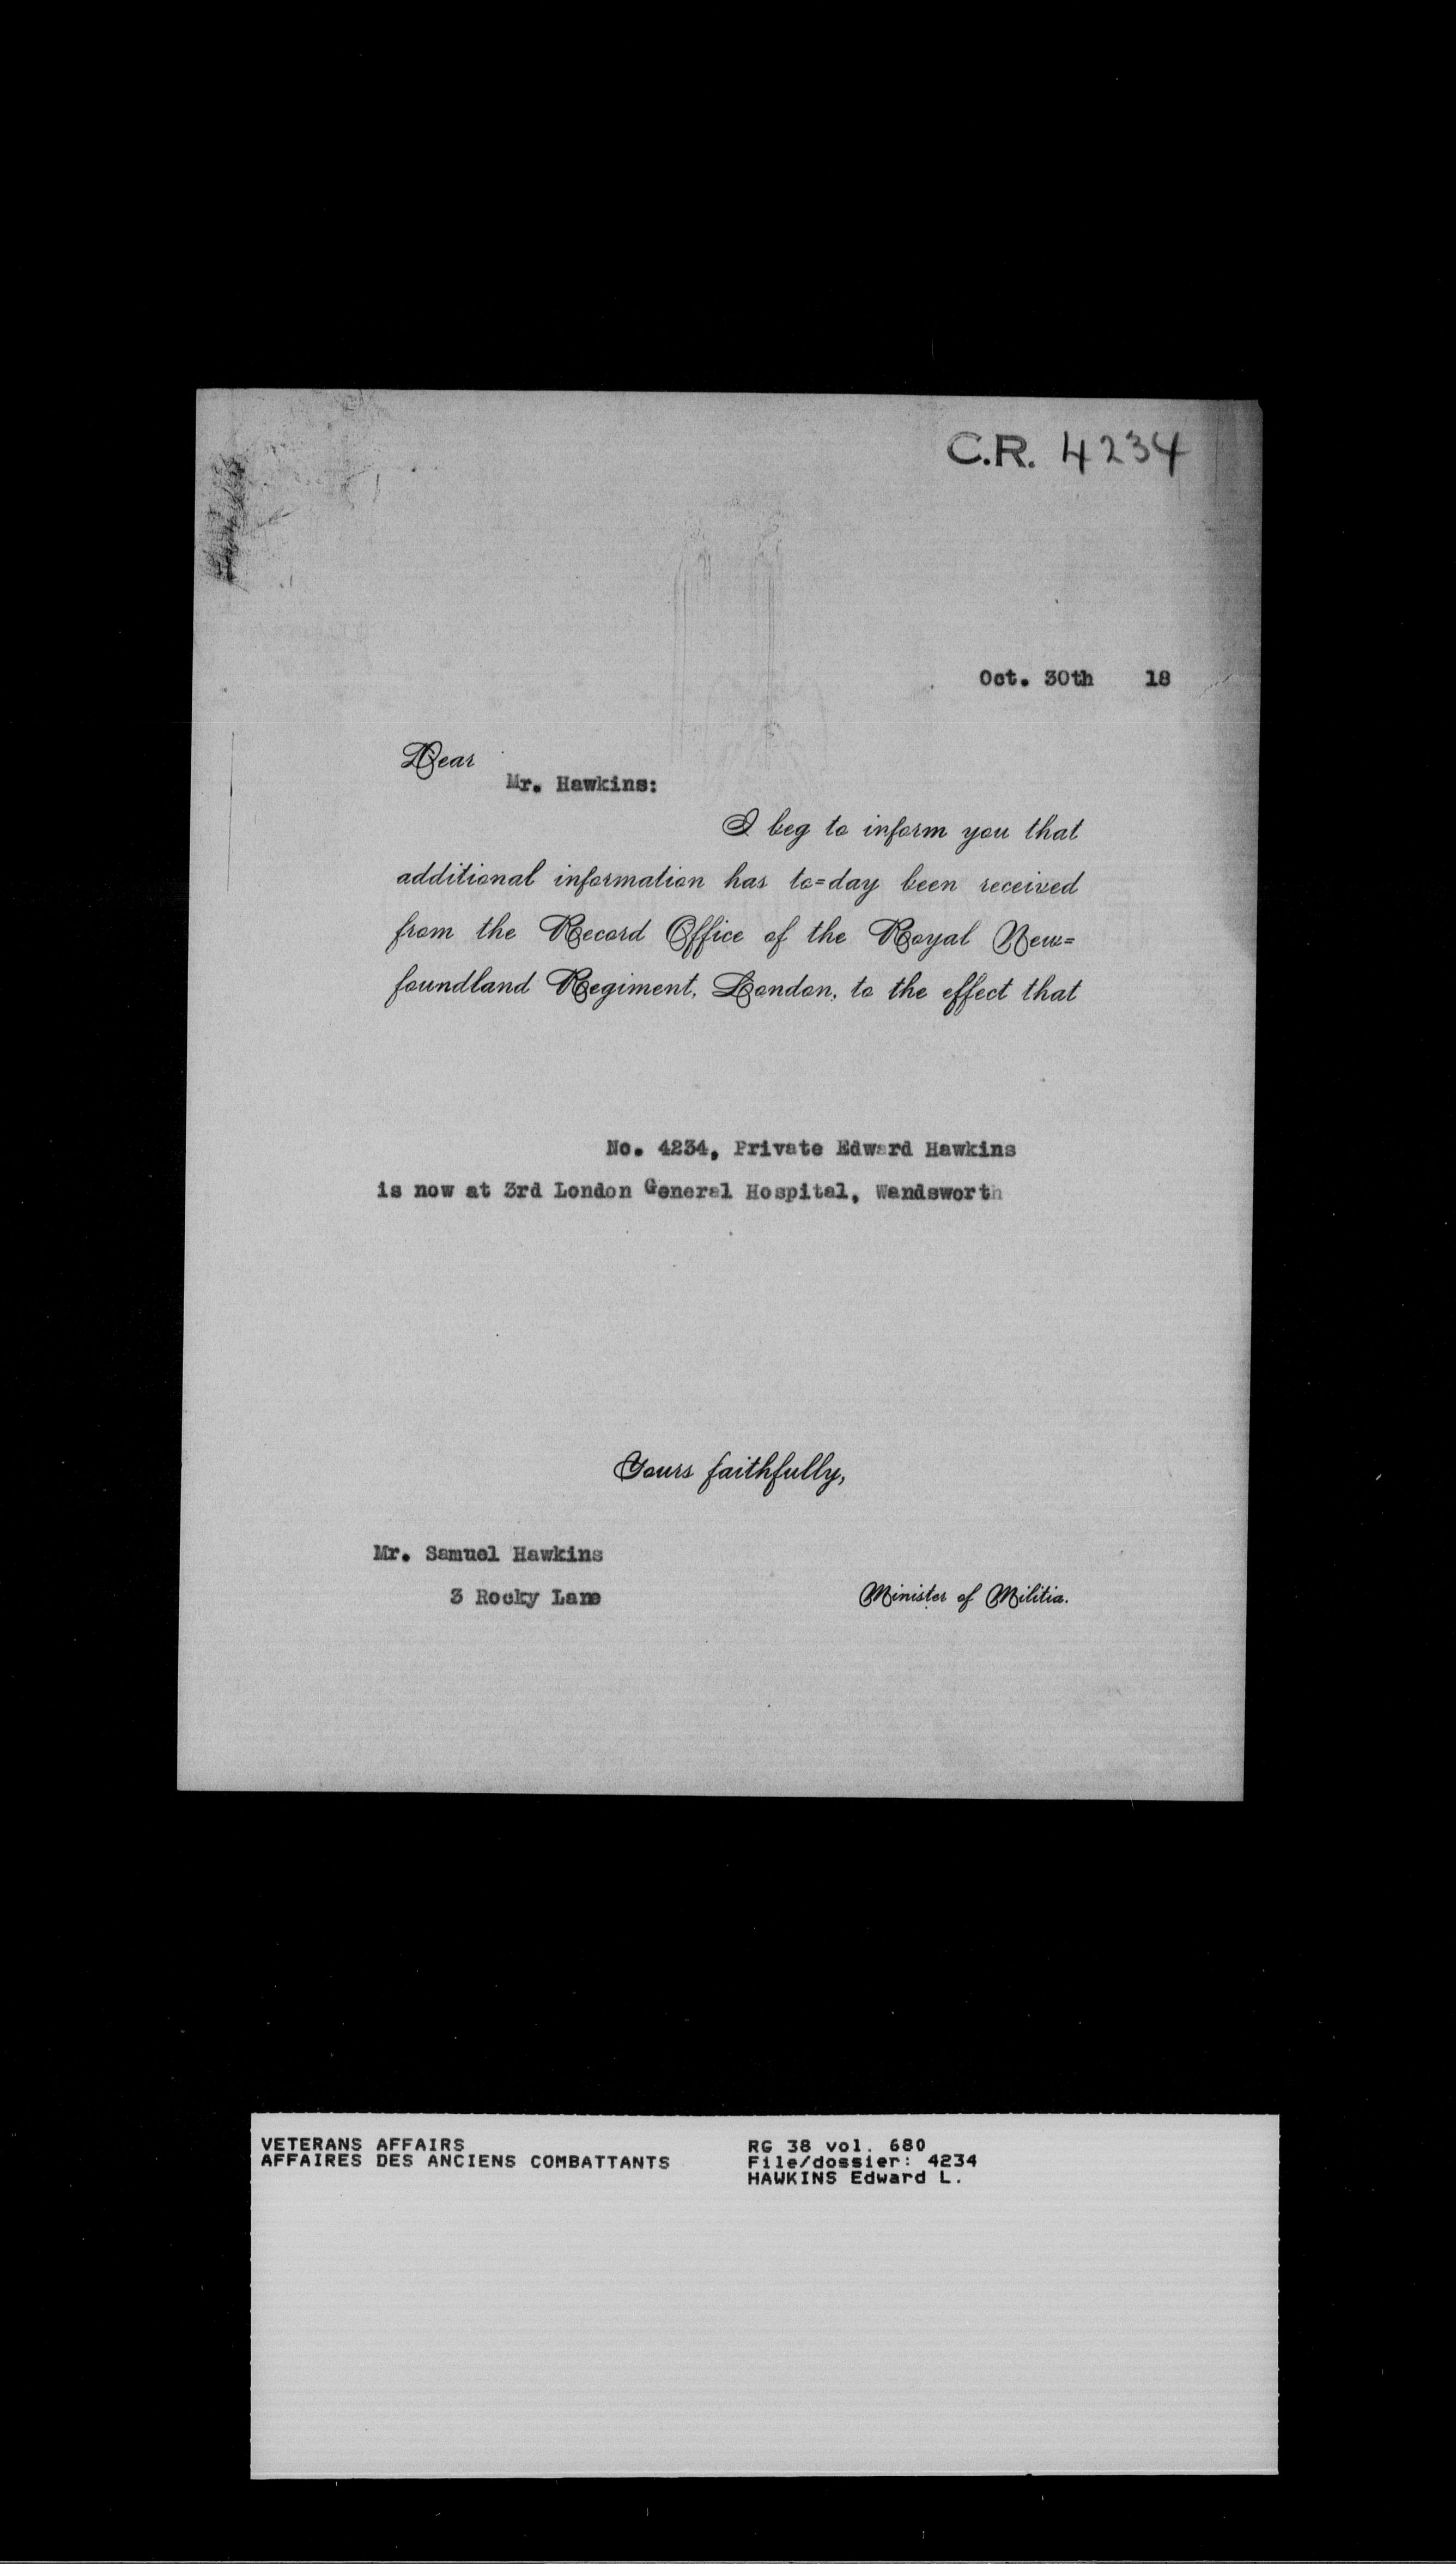 C.R. 4234
Oct. 30th 18
Dear
Mr. Hawkins:
I beg to inform you that
additional information has to=day been received
from the Record Office of the Royal New=
foundland Regiment, London, to the effect that
No. 4234, Private Edward Hawkins
is now at 3rd London General Hospital, Wandsworth
Yours faithfully,
Mr. Samuel Hawkins
3 Rocky Lane
Minister of Militia.
VETERANS AFFAIRS
AFFAIRES DES ANCIENS COMBATTANTS
RG 38 vol. 680
File/dossier: 4234
HAWKINS Edward L.